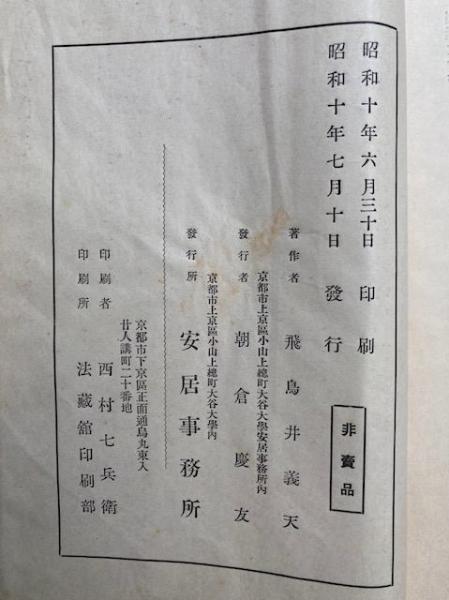 昭和十年六月三十日 印刷
昭和十年七月十日 發行
非賣品
著作者 飛鳥井義天
京都市上京區小山上總町大谷大學安居事務所內
發行者 朝倉慶友
京都市上京區小山上總町大谷大學內
發行所 安居事務所
京都市下京區正面通烏丸東入
廿人講町二十番地
印刷者 西村七兵衛
印刷所 法藏館印刷部